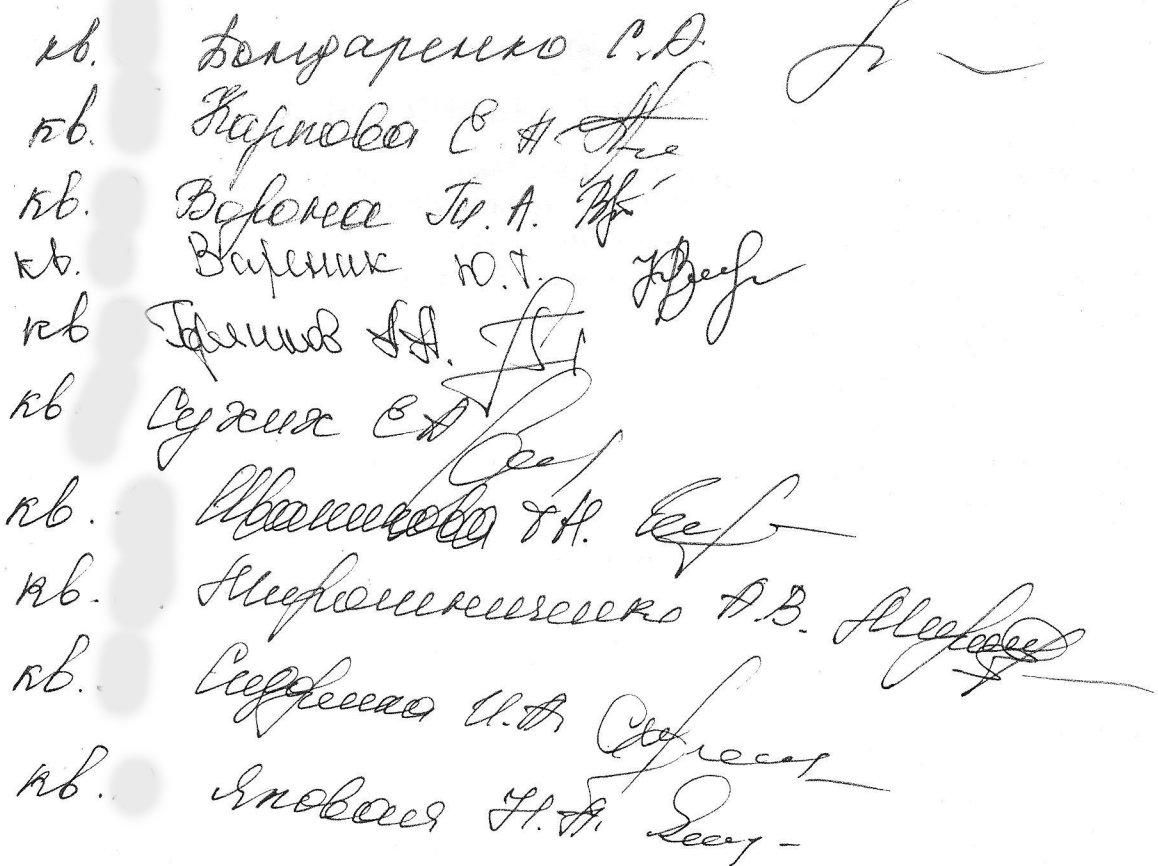 кв. Бондаренко С.А.
кв. Карпова Е А
кв. Ворона Т. А.
кв. Вареник Ю.Г.
кв А.А.
кв Сухих Е А
кв. Иванникова Т Н.
кв. Мирошниченко А.В.
кв. И.А
кв. Яковаля Н.А.